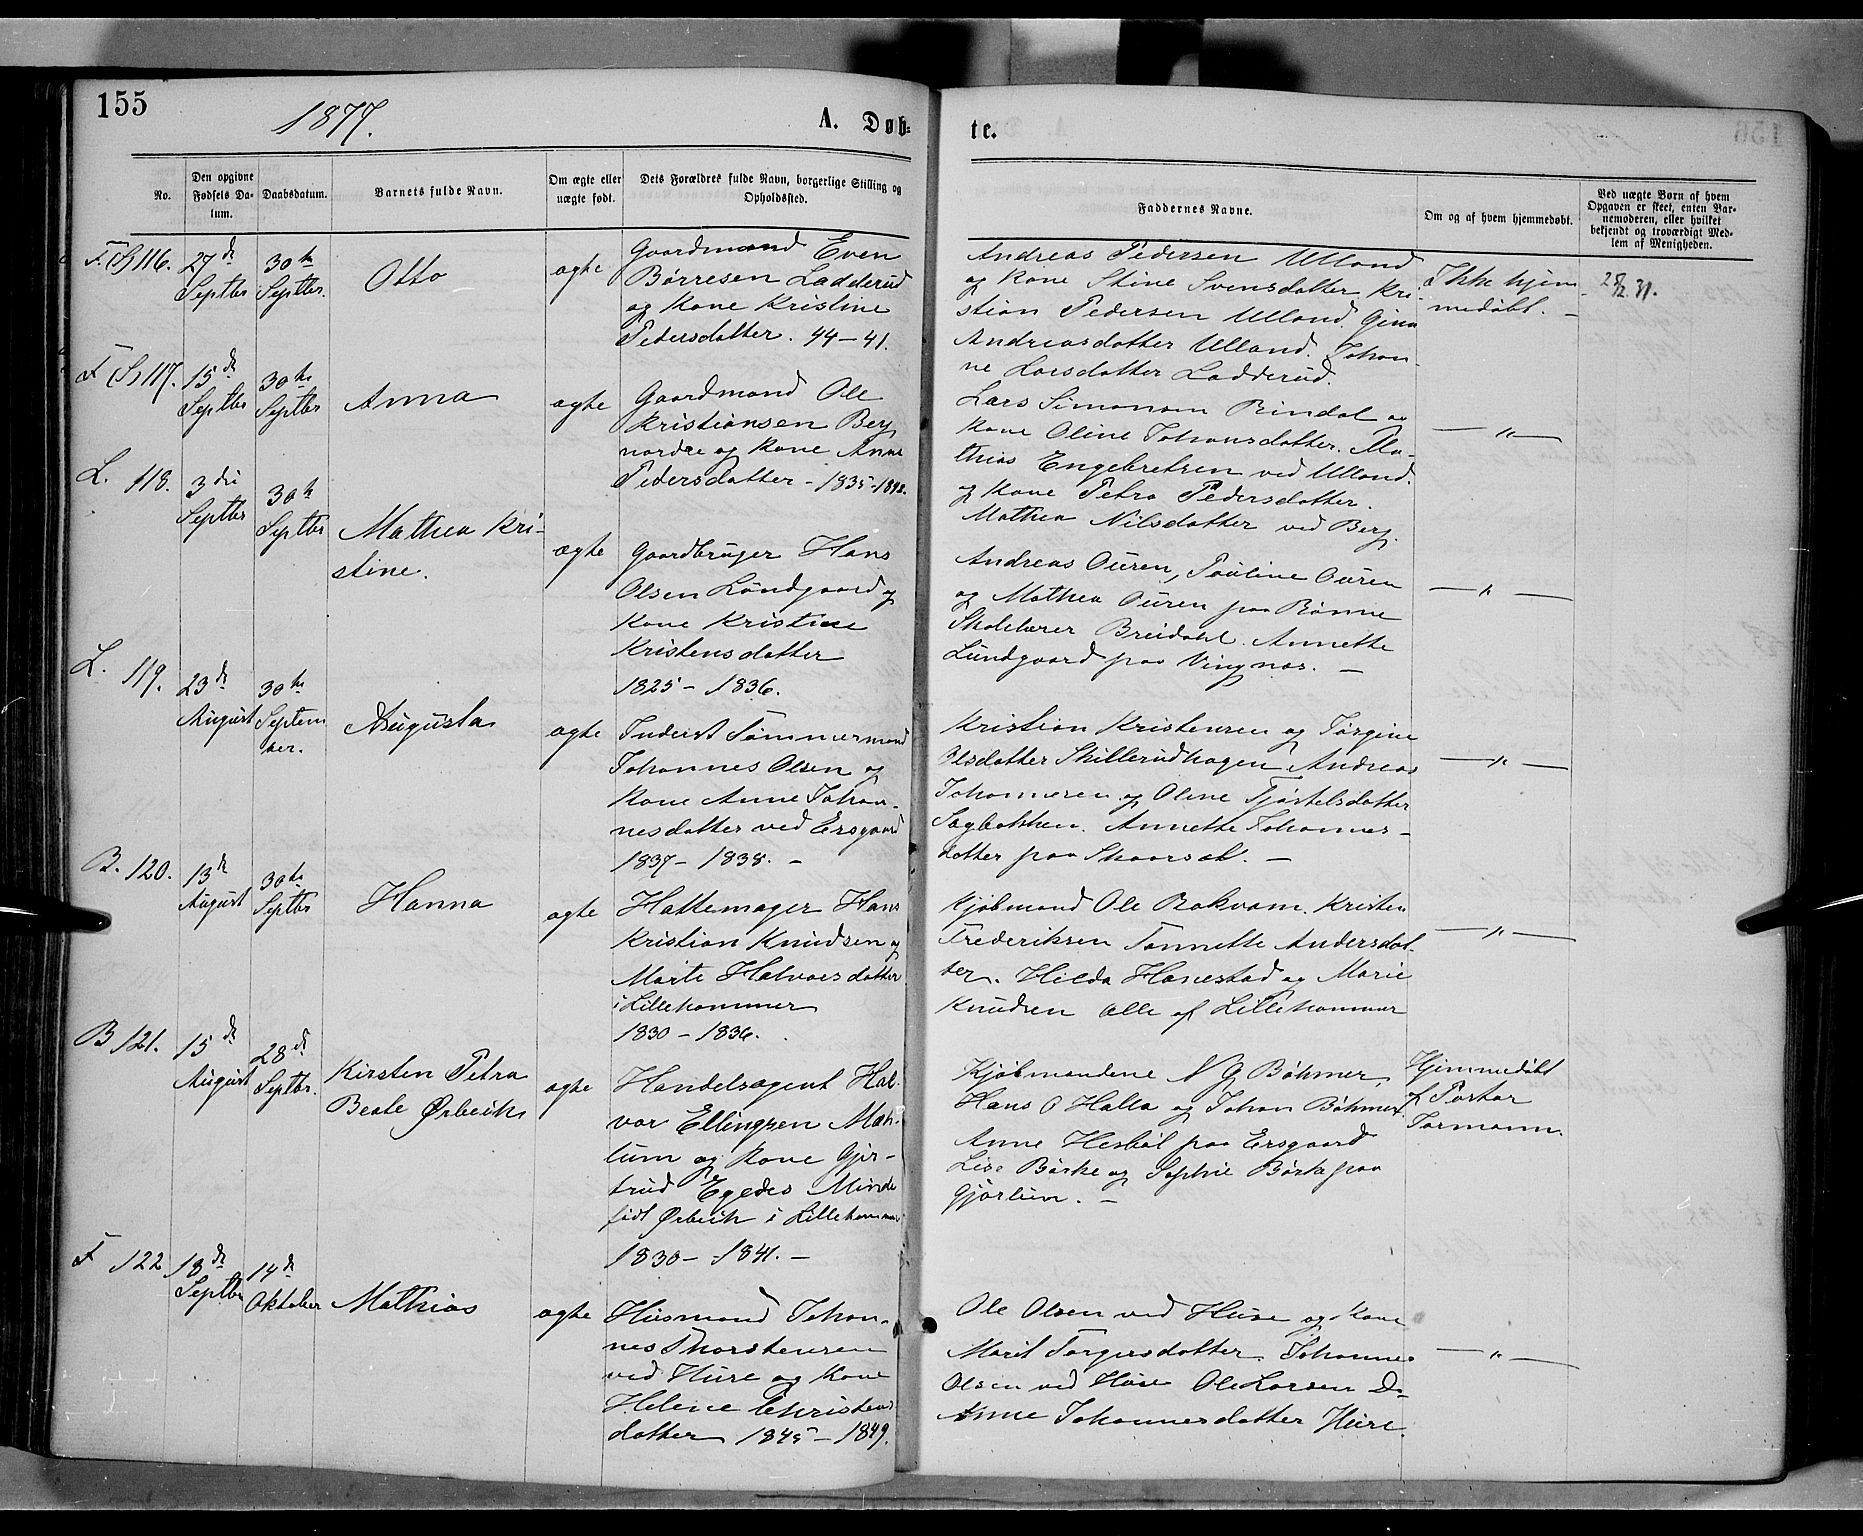 155
1877.
A. Døb-
te.
No.
Den opgivne Fødsels Da-
tum.
Daabsdatum.
Barnets fulde Navn.
Om ægte eller
uægte født.
Dets Forældres fulde Navn, borgerlige Stilling og
Opholdssted.
Faddernes Navne.
Om og af hvem hjemmedøbt.
Ved uægte Børn af hvem
Opgaven er skeet, enten Bar-
nemoderen, eller hvilket
bekjendt og troværdigt Med-
lem af Menigheden.
F. (S) 116.
27de
Septbr
30te
Septbr.
Otto
ægte
Gaardmand Even
Børresen Ladderud
og Kone Kristine
Pedersdatter. 44-41.
Andreas Pedersen Ulland
og Kone Stine Svensdatter Kri-
stian Pedersen Ulland. Gina
Andreasdatter Ulland. Johan-
ne Larsdatter Ladderud.
Ikke hjem-
medøbt. -
F (S) 117.
15de
Septbr
30te
Septbr
Anna
ægte
Gaardmand Ole
Kristiansen Berg
nordre og Kone Anne
Pedersdatter - 1835-1842.
Lars Simonsen Rindal og
Kone Oline Johansdatter. Ma-
thias Engebretsen ved Ulland.
og Kone Petra Pedersdatter.
Mathea Nilsdatter ved Berg.
— " —
L. 118.
3die
Septbr
30te
Septbr
Mathea Kri-
stine.
ægte
Gaardbruger Hans
Olsen Lundgaard og
Kone Kristine
Kristensdatter
1825 - 1836.
Andreas Ouren, Pauline Ouren
og Mathea Ouren paa Rønne
Skolelærer Breidahl. Annette
Lundgaard paa Vingnæs. -
— " —
L. 119.
23de
August
30te
Septem
ber.
Augusta
ægte
Inderst Tømmermand
Johannes Olsen og
Kone Anne Johan-
nesdatter ved Ersgaard
1837 - 1838. -
Kristian Kristensen og Jørgine
Olsdatter Skillerudhagen Andreas
Johannesen og Oline Kjøstelsdatter
Sagbakken. Annette Johannes-
datter paa Skaarsæt. -
— " —
B. 120.
13de
August
30te
Septbr
Hanna
ægte
Hattemager Hans
Kristian Knudsen og
Marte Halvorsdatter
i Lillehammer
1830 - 1836.
Kjøbmand Ole Rokvam. Kristen
Frederiksen Tonnette Andersdat-
ter. Hilda Hanestad og Marie
Knudsen alle af Lillehammer
— " —
B 121.
15de
August
28de
Septbr.
Kirsten Petra
Beate Ørbech
ægte
Handelsagent Hal-
vor Ellingsen Mæh-
lum og Kone Gjer-
trud Egedes Minde
født Ørbech i Lillehammer
1830 - 1841. -
Kjøbmændene N G Bøhmer,
Hans O Halla og Johan Bøhmer.
Anne Hesbøl paa Ersgaard
Lise Børke og Sophie Børke paa
Gjørlien. -
Hjemmedøbt
af Pastor
Tormann.
F 122
18de
Septbr
14de
Oktober
Mathias
ægte
Husmand Johan-
nes Thorstensen
ved Huse og Kone
Helene Christens
datter 1845 - 1849.
Ole Olsen ved Huse og Kone
Marit Torgersdatter. Johannes
Olsen ved Huse Ole Larsen Do
Anne Johannesdatter Huse.
— " —